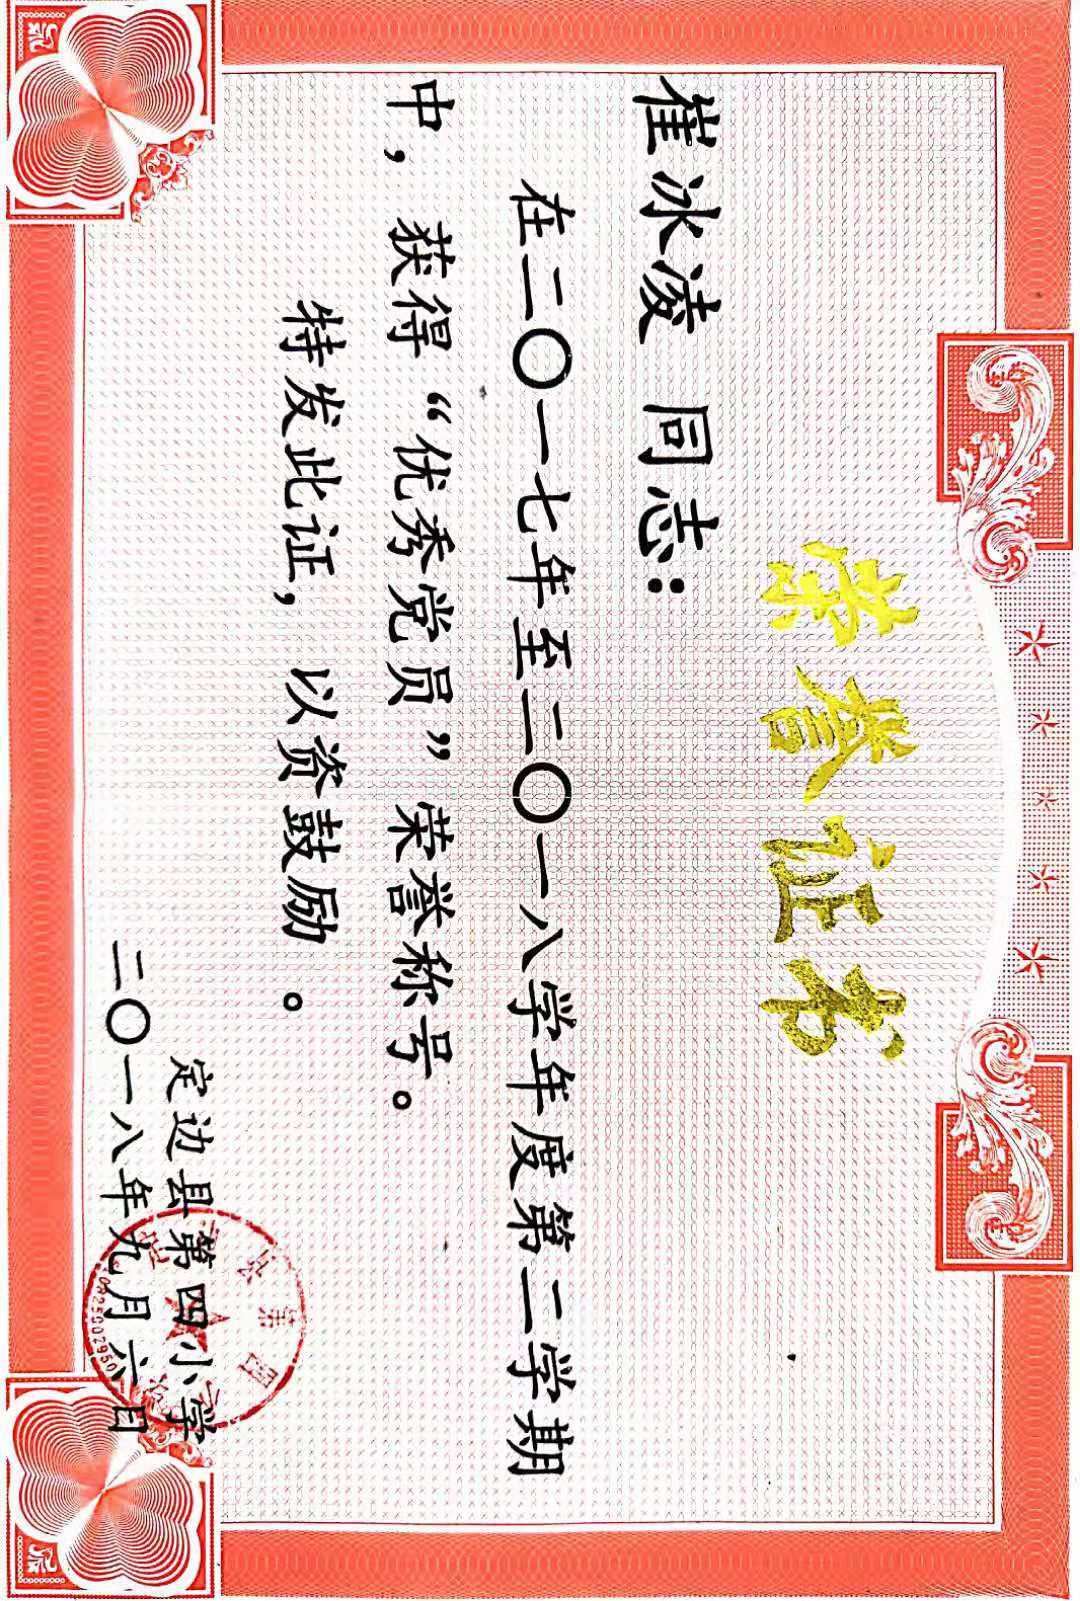 荣誉证书
崔冰凌 同志：
在二〇一七年至二〇一八学年度第二学期
中，获得“优秀党员”荣誉称号。
特发此证，以资鼓励。
定边县第四小学
二〇一八年九月六日